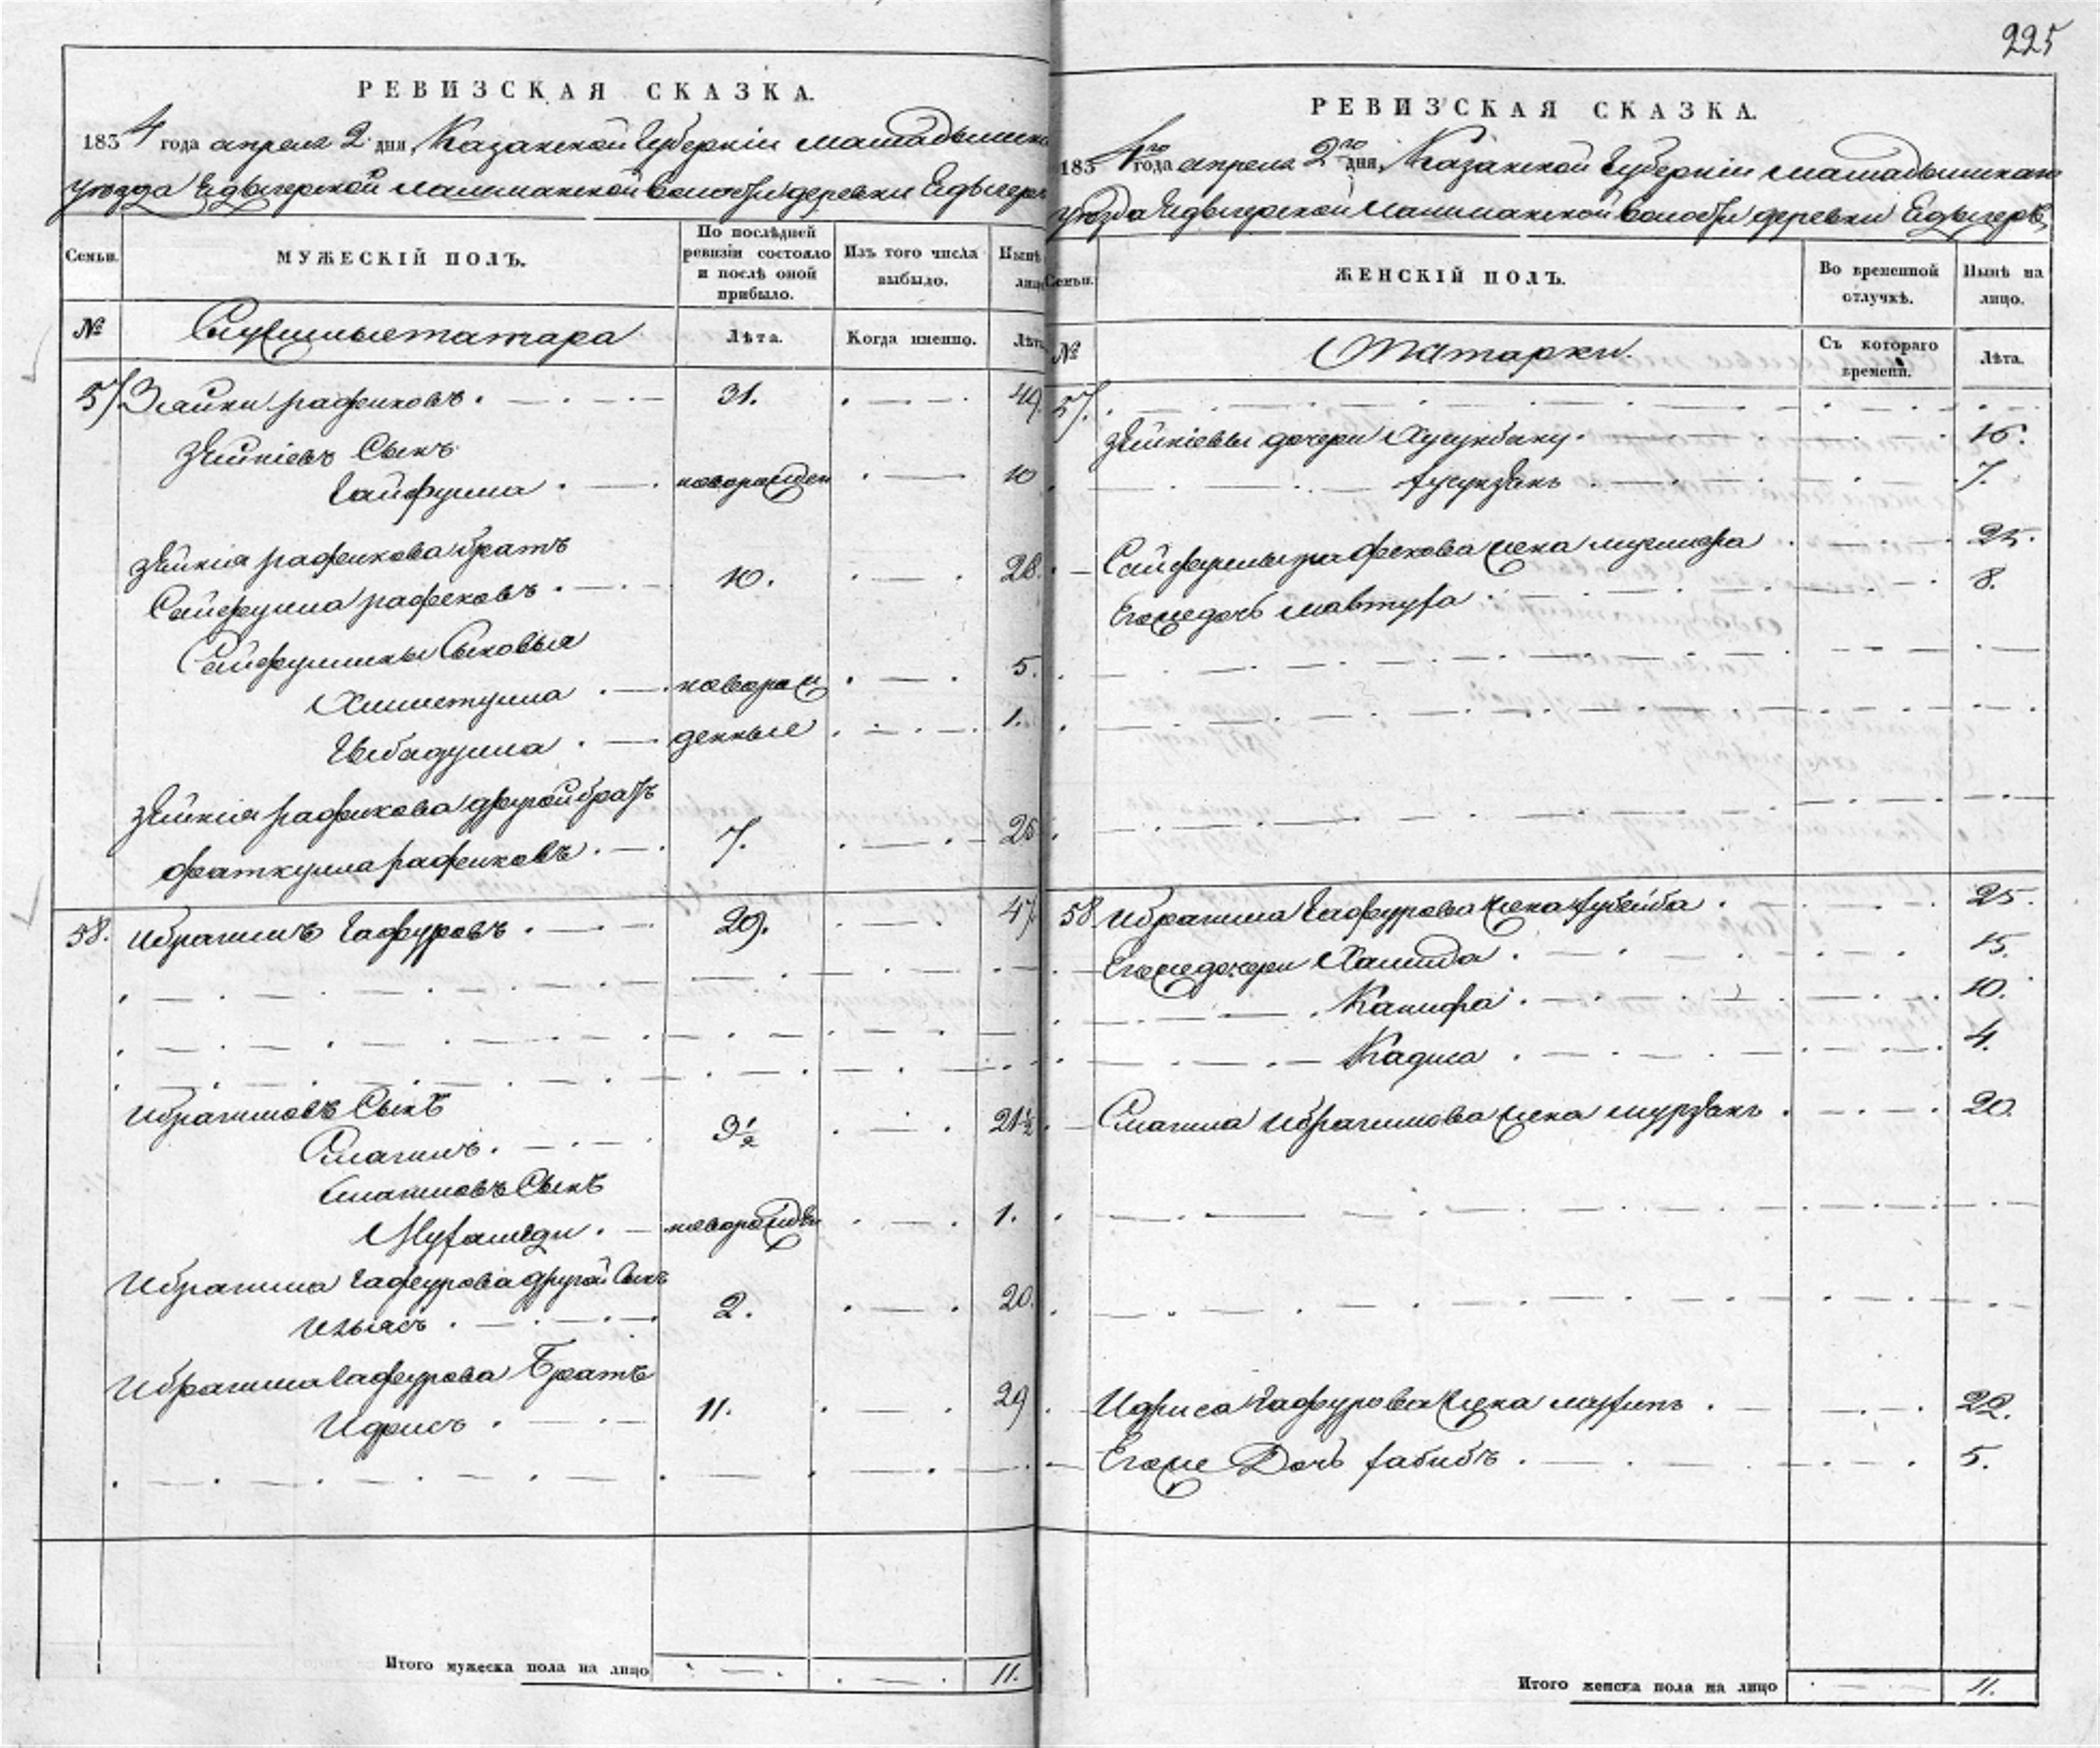 225
РЕВИЗСКАЯ СКАЗКА.
1834 года апреля 2 дня, Казанской Губерніи мамадышска
уѣзда Едыгерской лашманской волости деревни Едыгеръ
Семьи.
МУЖЕСКІЙ ПОЛЪ.
По послѣдней ревизіи состояло и послѣ оной прибыло.
Изъ того числа выбыло.
Нынѣ лицо
№
Служилые татара
Лѣта.
Когда именно.
Лѣта
57. Зейки рафиковъ. 31. 49.
Зейкіевъ Сынъ
Гайфулла новорожден 10
Зейкія рафикова братъ
Сейфулла рафиковъ 10. 28.
Сейфуллины Сыновья
Химетулла новорож 5.
Гибадулла денные 1.
Зейкія рафикова другой братъ
Фаткулла рафиковъ 7. 25
58. Ибрагимъ Гафуровъ 29. 47.
Ибрагимовъ Сынъ
Смагилъ 3½ 21½
Смагиловъ Сынъ
новорожден 1.
Ибрагима Гафурова другой Сынъ
Ильясъ 2. 20.
Ибрагима Гафурова Братъ
Идрисъ 11. 29
Итого мужеска пола на лицо 11.
РЕВИЗСКАЯ СКАЗКА.
1834го года апреля 2го дня, Казанской Губерніи мамадышскаго
уѣзда Едыгерской лашманской волости деревни Едыгеръ
Семьи.
ЖЕНСКІЙ ПОЛЪ.
Во временной отлучкѣ.
Нынѣ на лицо.
№
Татарки.
Съ котораго времени.
Лѣта.
57.
Зейкіевы дочери 16.
7.
Сейфуллы рафикова жена 25.
Егоже дочь 8.
58 Ибрагима Гафурова жена Зубейба 25.
Егоже дочери Хамида 15.
Канифа 10.
Кадиса 4.
Смагила Ибрагимова жена 20.
Идриса Гафурова жена 22.
Егоже Дочь 5.
Итого женска пола на лицо 11.